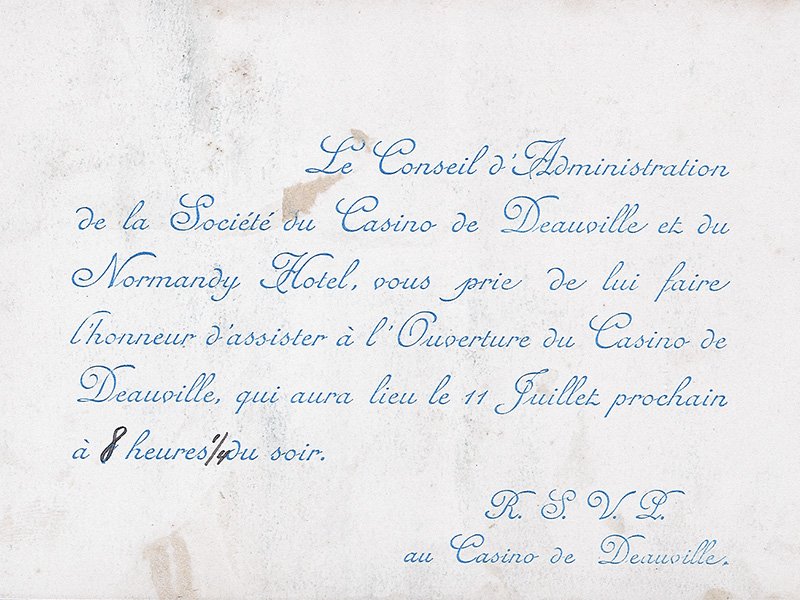 Le Conseil d'Administration
de la Société du Casino de Deauville et du
Normandy Hotel, vous prie de lui faire
l'honneur d'assister à l'Ouverture du Casino de
Deauville, qui aura lieu le 11 Juillet prochain
à 8 heures 1/4 du soir.
R. S. V. P.
au Casino de Deauville.